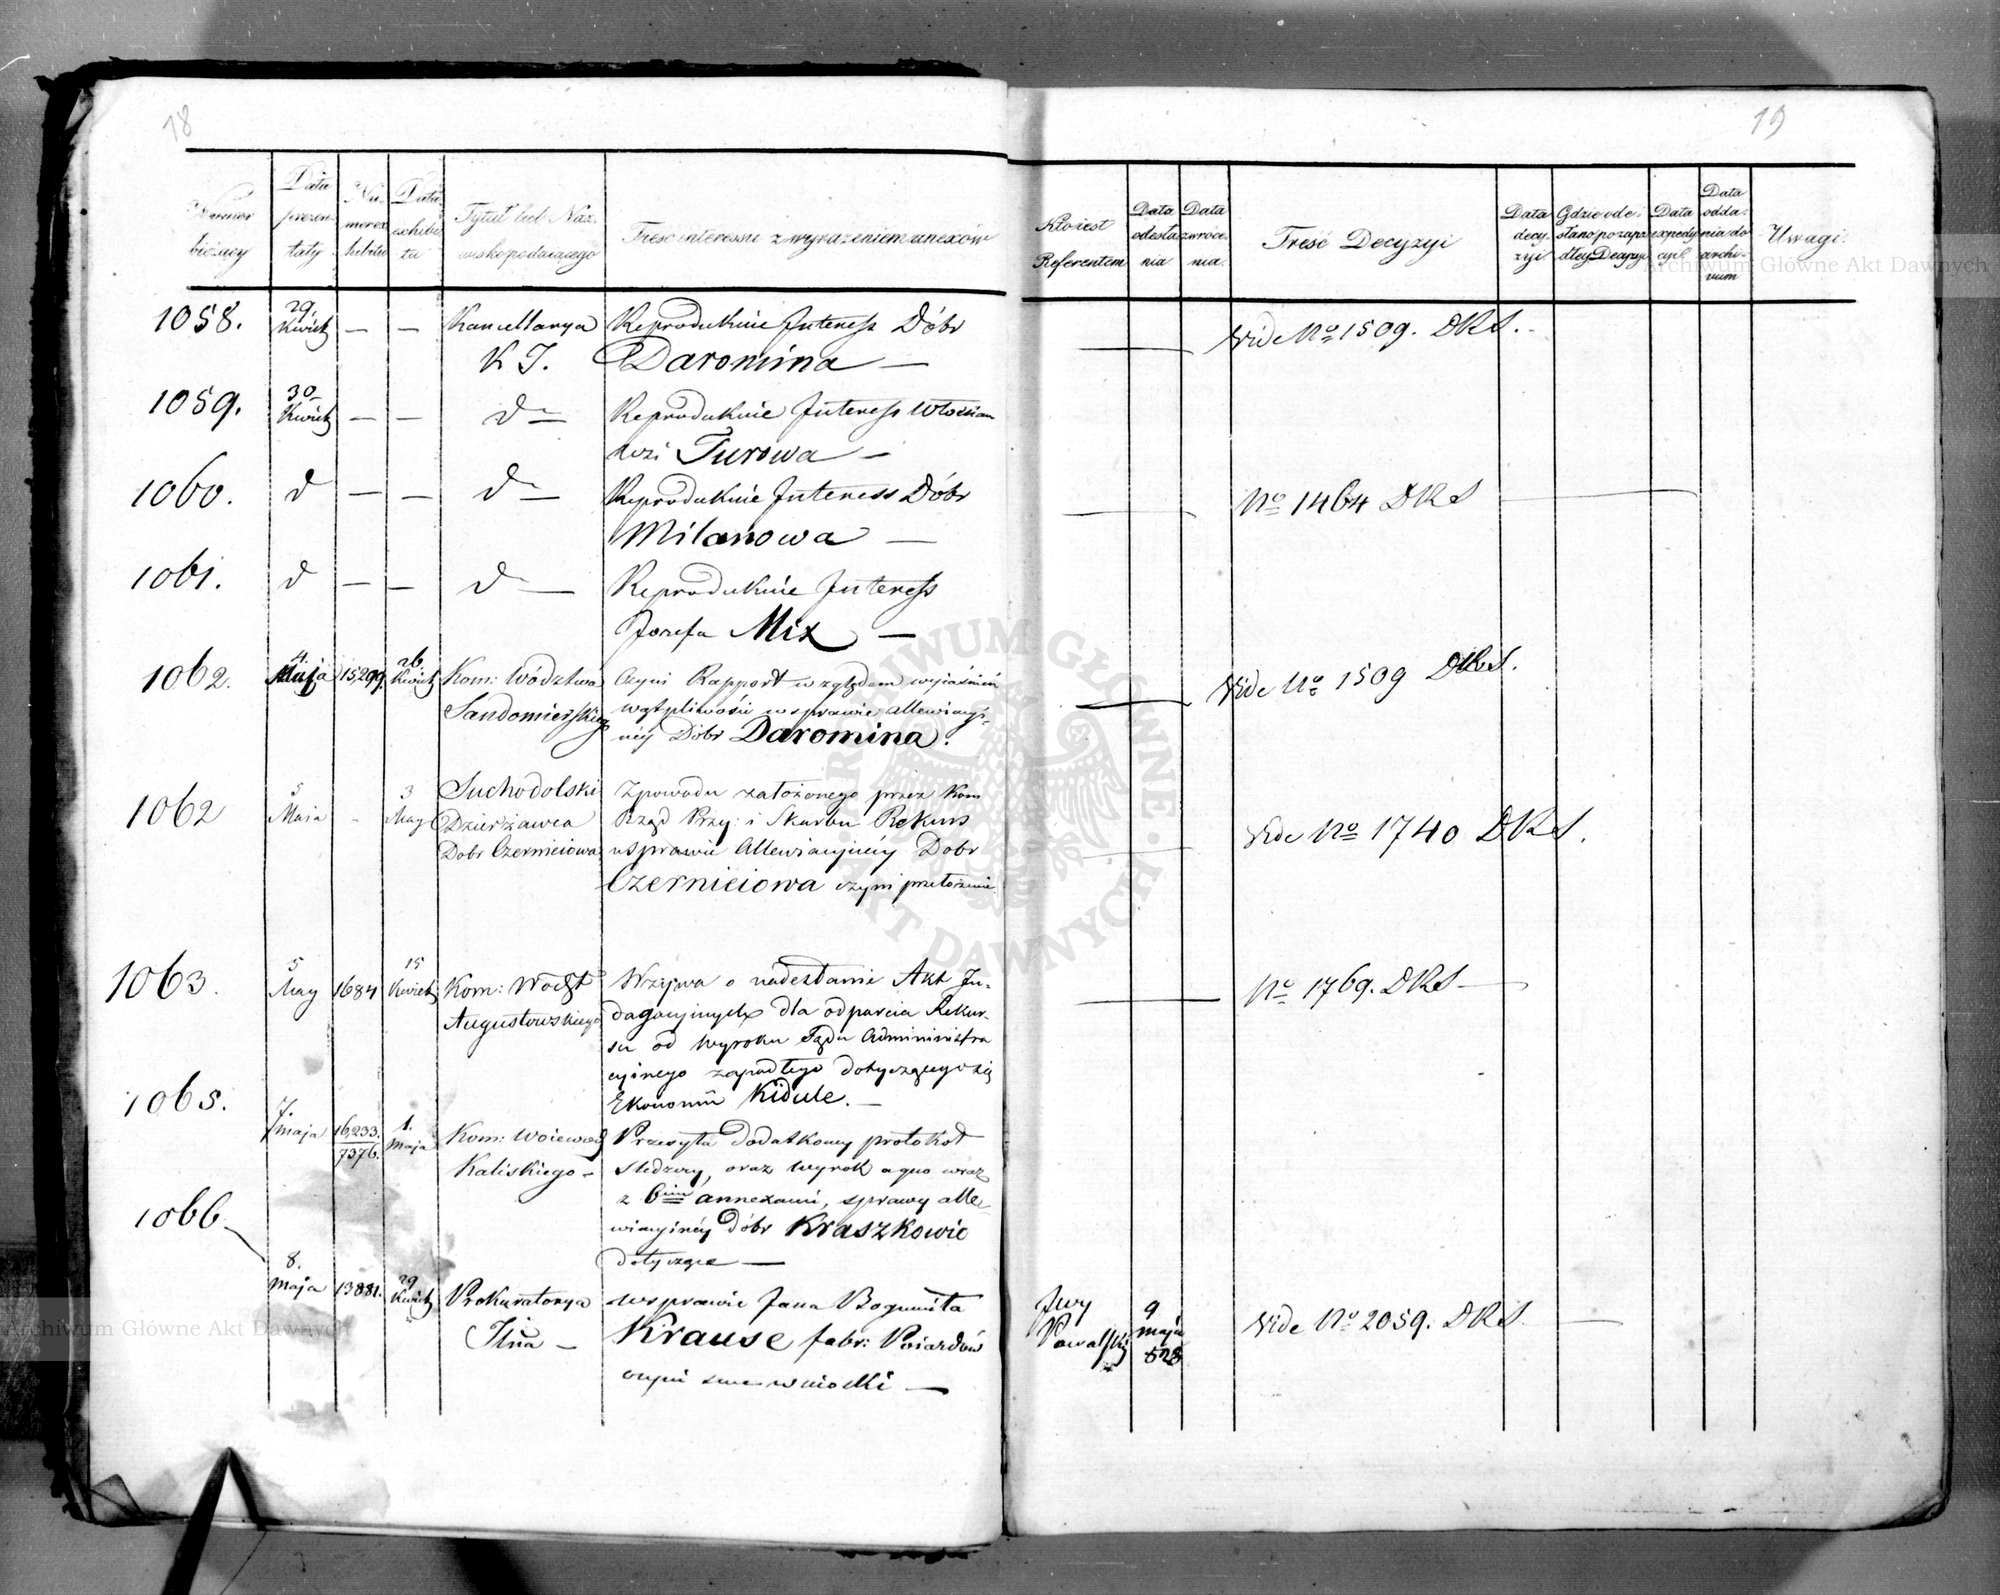 18
Numer bieżący
Data prezentaty
Numer exhibitu
Data exhibitu
Tytuł lub Nazwisko podaiącego
Treść interessu z wyrażeniem anexów
1058. 29. Kwiet — — Kancellarya Reprodukuie Interess Dóbr
K J. Daromina —
1059. 30 Kwiet — — d° — Reprodukuie Interess Włościan
wzi Turowa —
1060. d — — d° — Reprodukuie Interess Dóbr
Milanowa —
1061. d — — d° — Reprodukuie Interess
Jozefa Mix —
1062. 4 Maja 15,299. 26. Kwiet Kom: Wództwa Czyni Rapport względem wyiaśnień
Sandomierskieg wątpliwości w sprawie allewiacyi-
néy Dóbr Daromina.
1062 5 Maia - 3 May Suchodolski Zpowodu założonego przez Kom
Dzierżawca Rząd Przy: i Skarbu Rekurs
Dobr Czerniciowa w sprawie Allewiacyinéy Dobr
Czerniciowa czyni przełożenie
1063. 5 May 1684 15 Kwiet Kom: Wodzt Wzywa o nadesłanie Akt In-
Augustowskiego dagacyinych dla odparcia Rekur-
su od Wyroku Sądu Administra
cyinego zapadłego dotyczącego się
Ekonomii Kidule. —
1065. 7. maja 16,233./7376. 1. maja Kom: Woiewod Przesyła dodatkowy protokół
Kaliskiego - sledczy, oraz wyrok a quo wraz
z 6im annexami, sprawy alle-
wiacyinéy dóbr Kraszkowic
dotyczące —
1066. 8. maja 13881. 29 Kwiet Prokuratorya w sprawie Jana Bogumiła
Krause fabr: Poiazdów
czyni swe wnioski —
19
Kto iest Referentem
Data odesłania
Data zwrócenia.
Treść Decyzyi
Data decyzyi
Gdzie odesłano po zapadłey Decyzyi
Data expedycyi
Data oddania do archivum
Uwagi.
— Vide No 1509. DKS. -
— No 1464 DKS —
— Vide No 1509 DKS.
— Vide No 1740 DKS.
— No 1769. DKS —
9 maja 828 Vide No 2059. DKS —
Archiwum Główne Akt Dawnych
Archiwum Główne Akt Dawnych
ARCHIWUM GŁÓWNE · AKT DAWNYCH ·